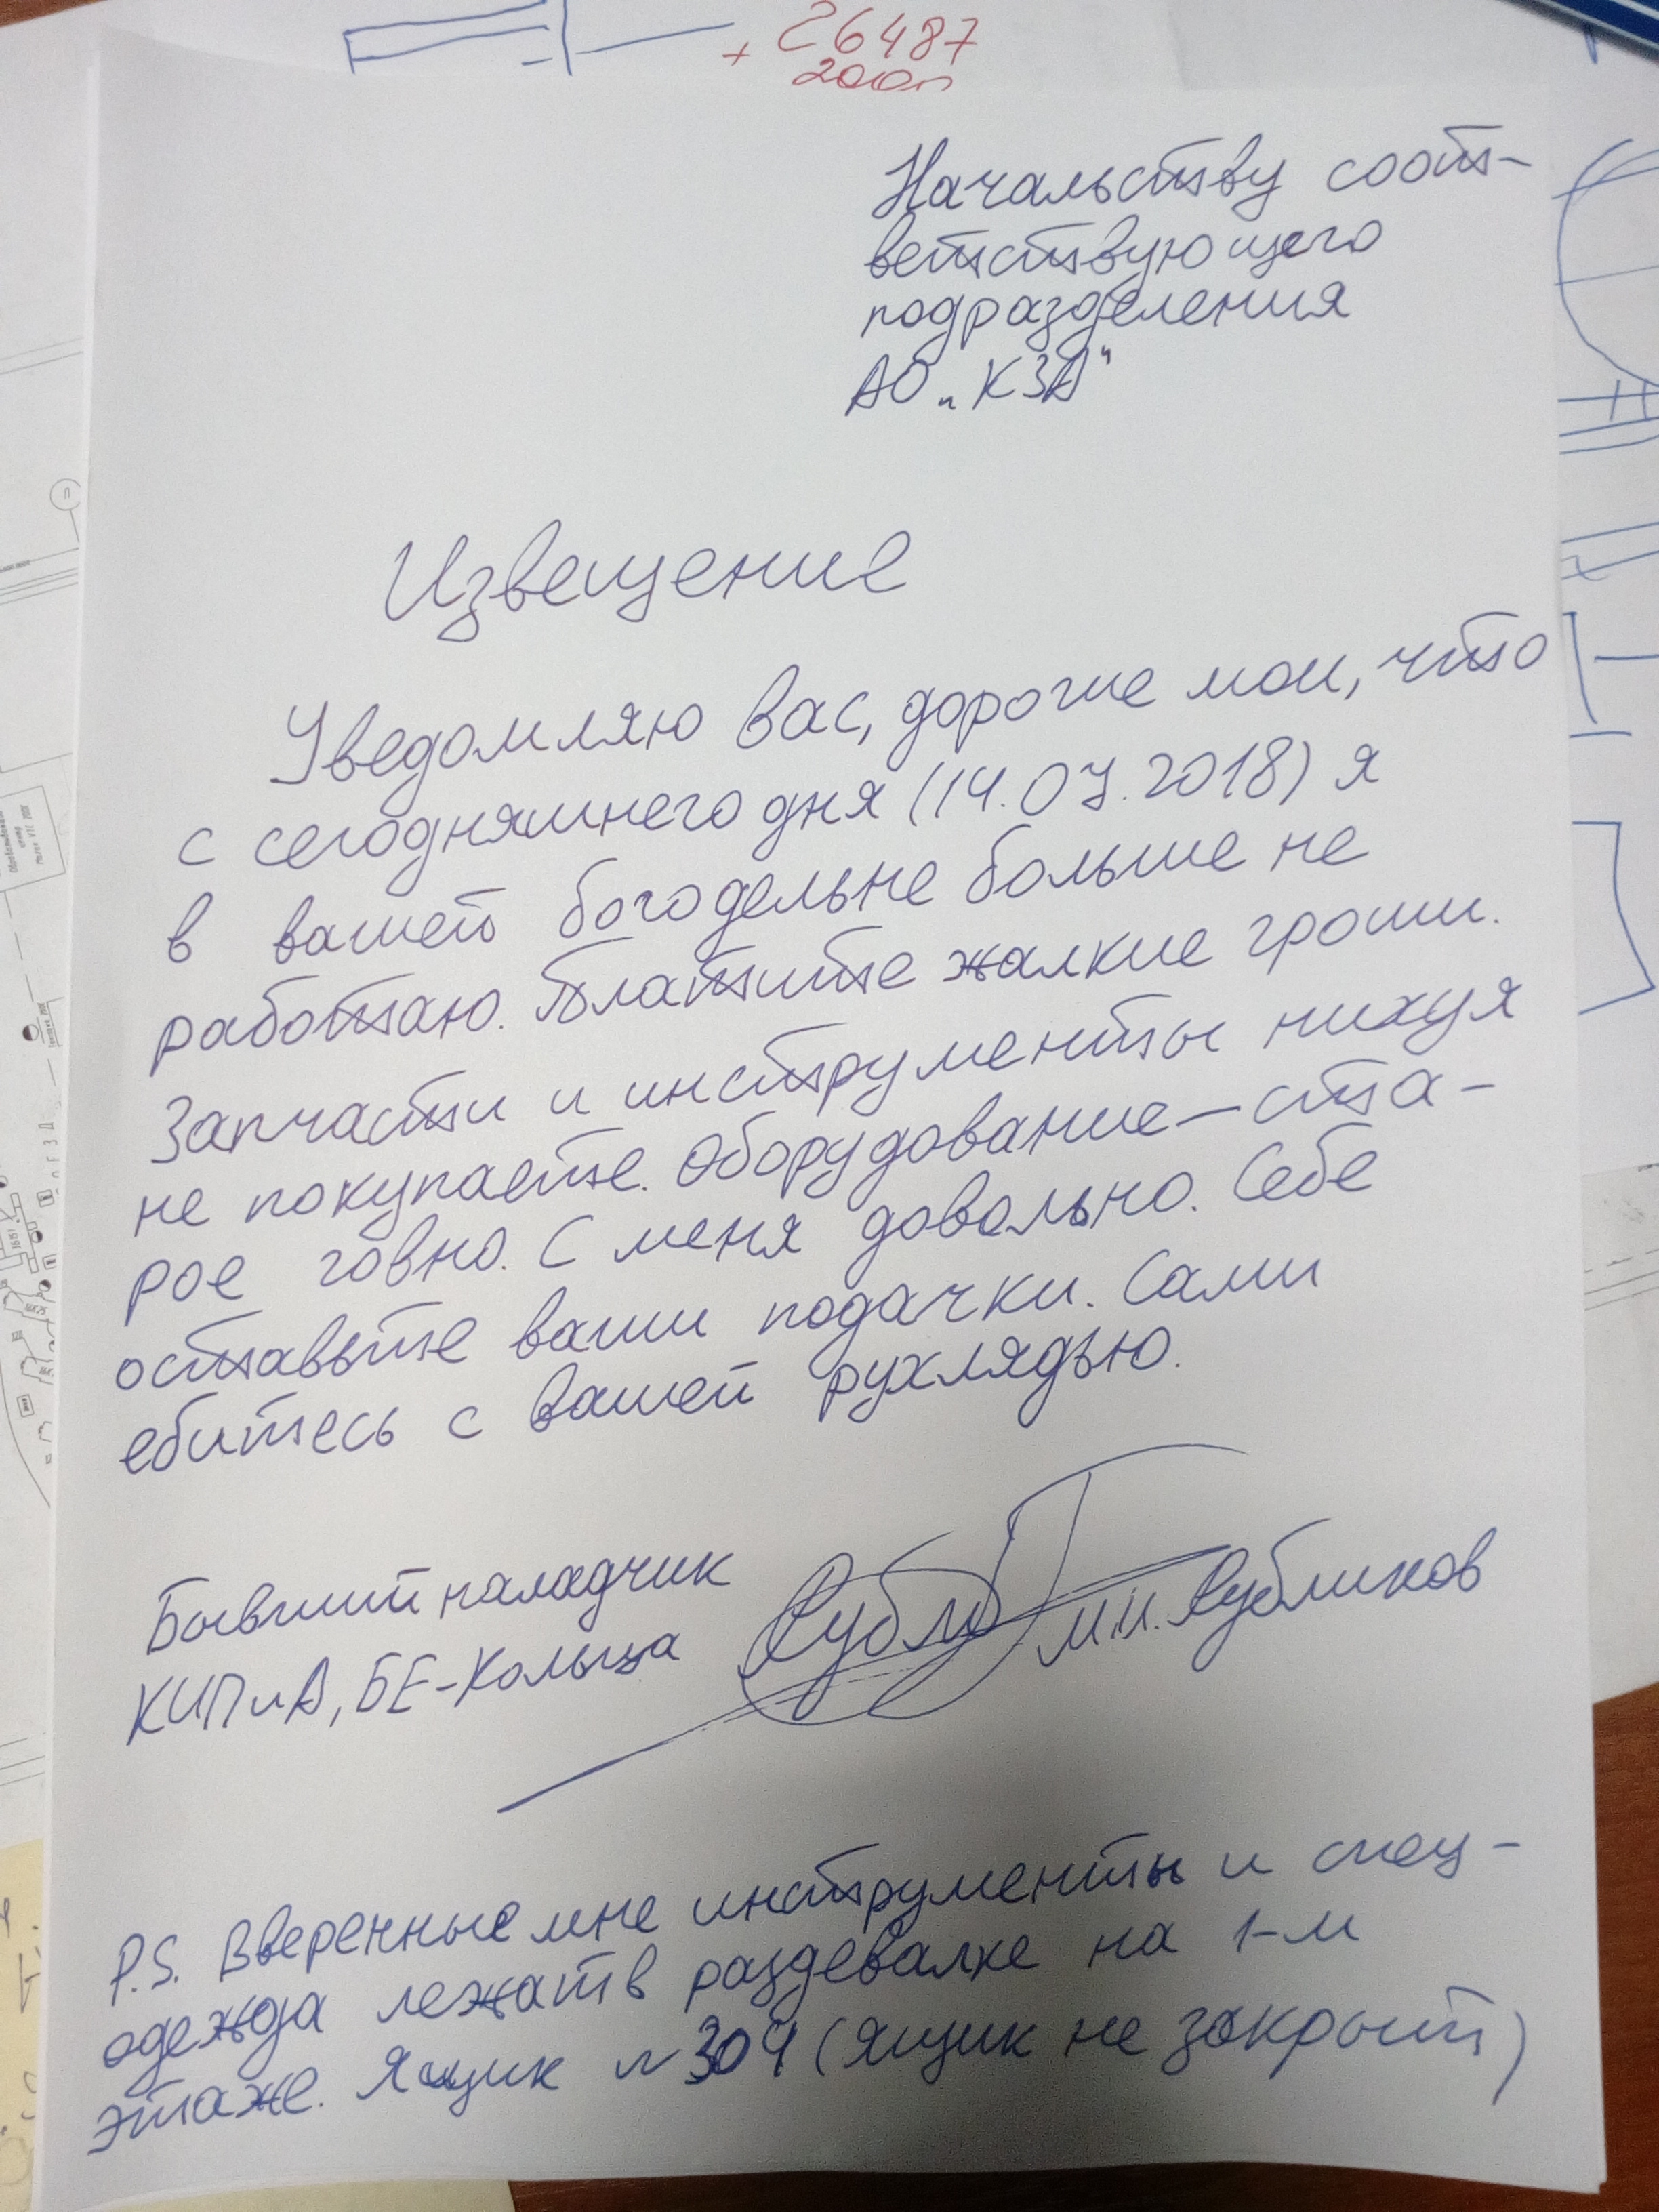 26487
Начальству соот-
ветствующего
подразделения
АО „КЗА"
Извещение
Уведомляю вас, дорогие мои, что
с сегодняшнего дня (14.07.2018) я
в вашей богодельне больше не
работаю. Платите жалкие гроши.
Запчасти и инструменты нихуя
не покупаете. Оборудование - ста-
рое говно. С меня довольно. Себе
оставьте ваши подачки. Сами
ебитесь с вашей рухлядью.
Бывший наладчик
КИПиА, БЕ-Кольца
P.S. Вверенные мне инструменты и спец-
одежда лежат в раздевалке на 1-м
этаже. Ящик № 304 (ящик не закрыт)